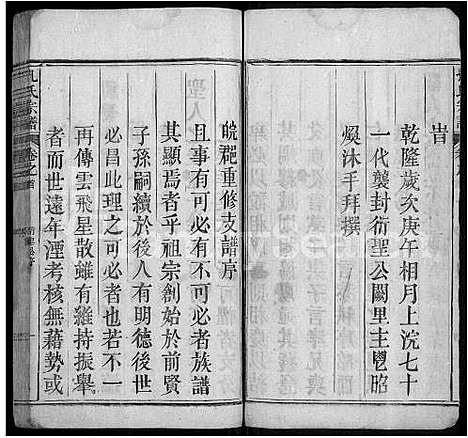 旹
乾隆歲次庚午相月上浣七十
一代襲封衍聖公闕里主鬯昭
煥沐手拜撰
皖郡重修支譜序
且事有可必有不可必者族譜
其顯焉者乎祖宗創始於前賢
子孫嗣續於後人有明德後世
必昌此理之可必者也若不一
再傳雲飛星散雖有維持振舉
者而世遠年湮考核無藉勢或
孔氏宗譜
卷之首